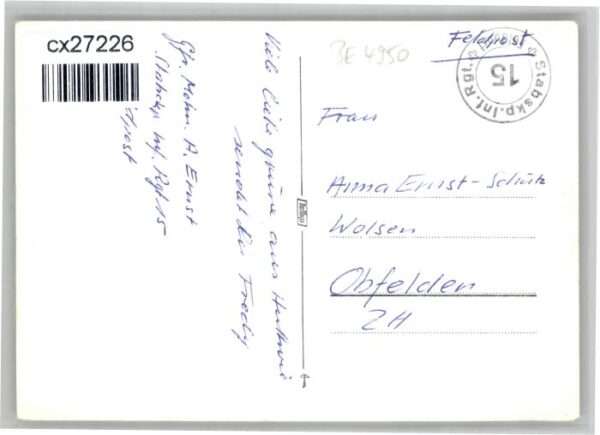 cx27226
BE 4950
Feldpost
Stabskp. Inf. Rgt.
15
Viele liebe grüsse aus Huttwil
sendet dir Fredy
A. Ernst
Stabskp Inf. Rgt 15
Frau
Anna Ernst-Schütz
Wolsen
Obfelden
ZH